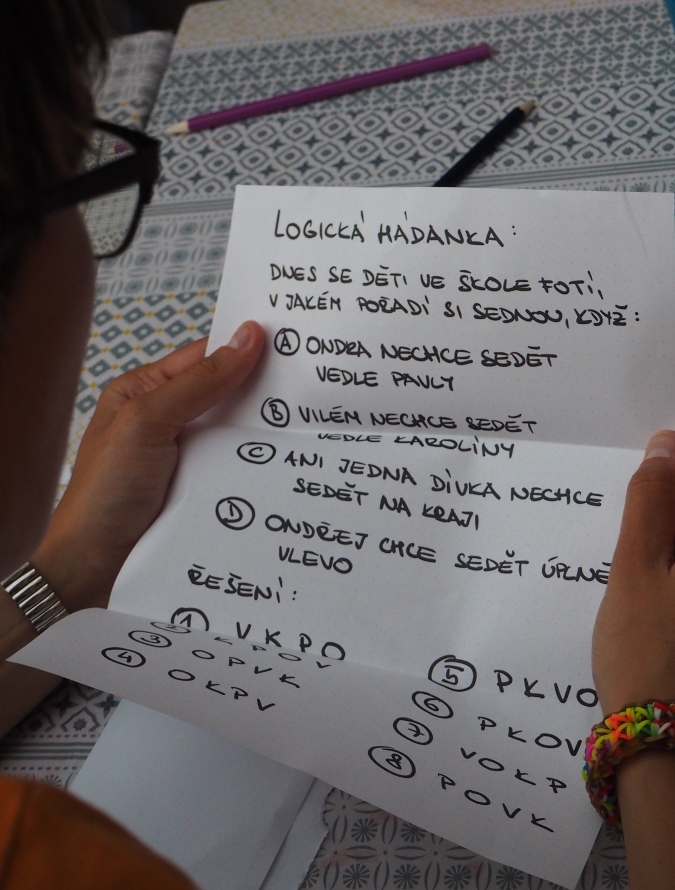 LOGICKÁ HÁDANKA:
DNES SE DĚTI VE ŠKOLE FOTÍ,
V JAKÉM POŘADÍ SI SEDNOU, KDYŽ:
Ⓐ ONDRA NECHCE SEDĚT
VEDLE PAVLY
Ⓑ VILÉM NECHCE SEDĚT
VEDLE KAROLÍNY
Ⓒ ANI JEDNA DÍVKA NECHCE
SEDĚT NA KRAJI
Ⓓ ONDŘEJ CHCE SEDĚT ÚPLNĚ
VLEVO
ŘEŠENÍ:
① V K P O
② K P O V
③ O P V K
④ O K P V
⑤ P K V O
⑥ P K O V
⑦ V O K P
⑧ P O V K